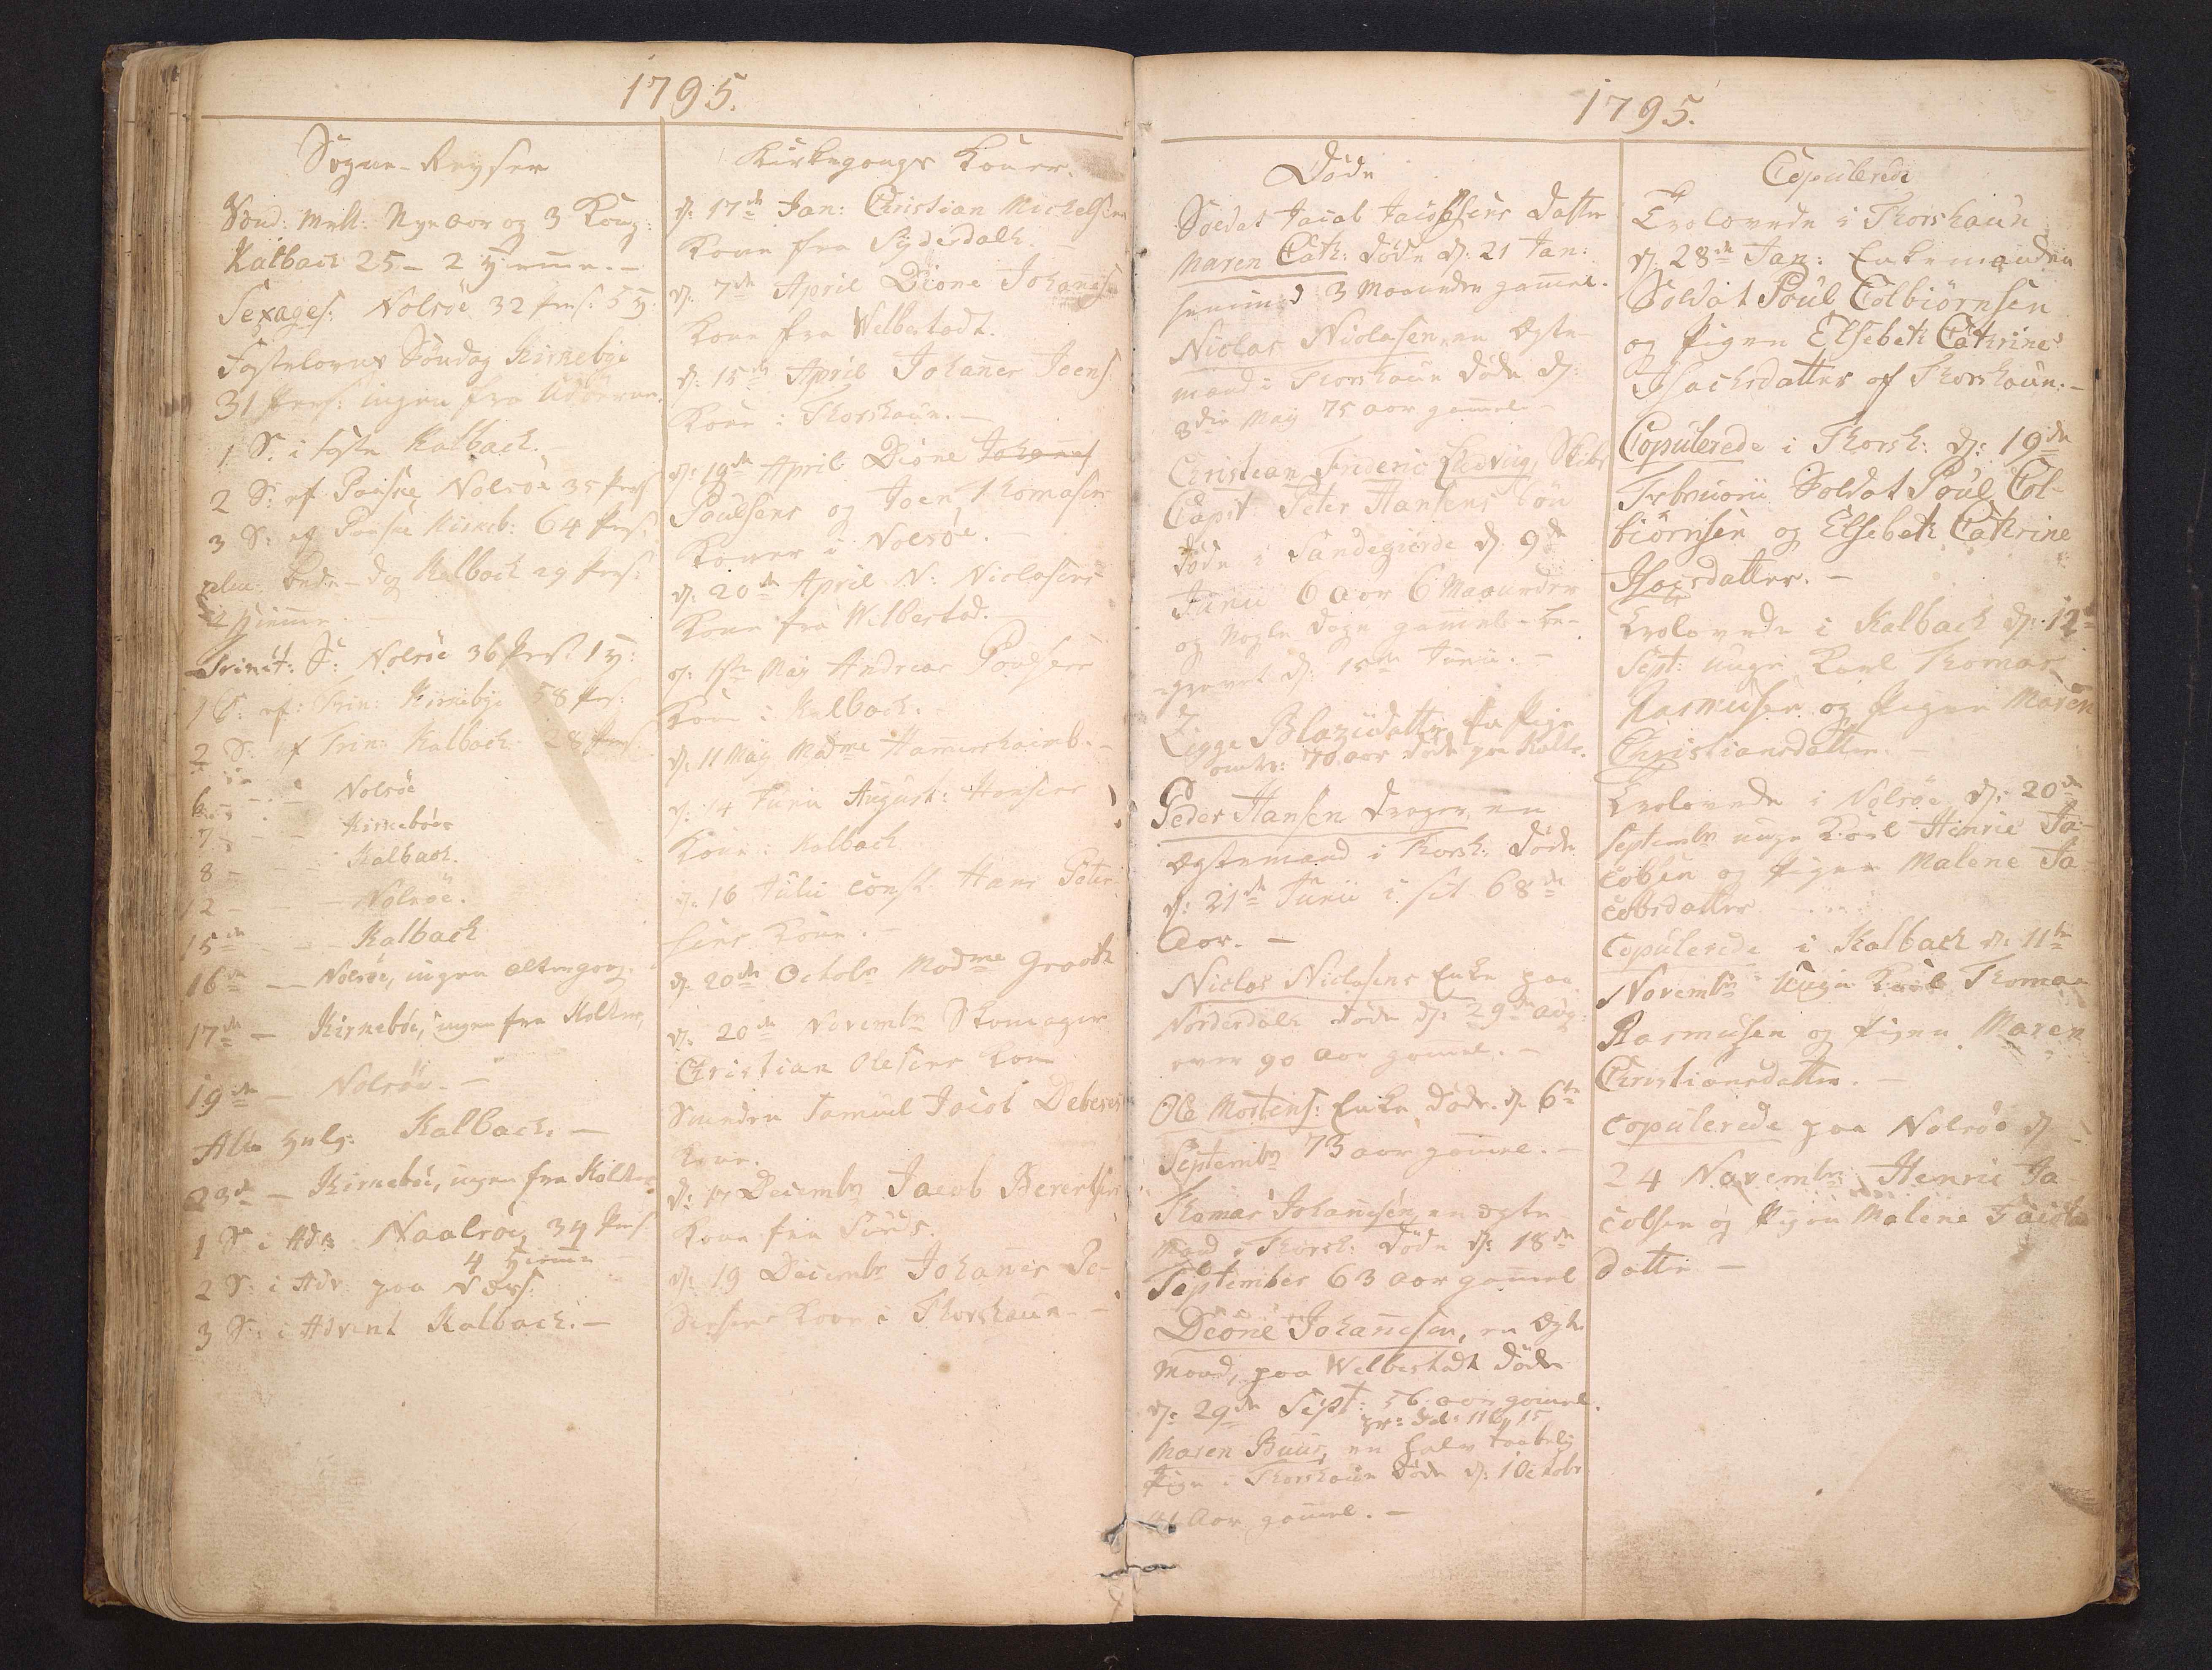 1795.
Sogne-Reyser
Sönd: mell: Nyeaar og 3 Kong:
Kalbach 25 - 2 Hiemme. -
Sexages: Nolsöe 32 Pers: 5 H:
Fastelavns Söndag Kirkebye
31 Pers: ingen fra
1 S: i Faste Kalbach. -
2 S: ef Paaske Nolsöe 35 Pers
3 S: ef Paaske Kirkeb: 64 Pers:
alm: Bede-dag Kalbach 29 Pers:
2 Hiemme. -
Trinit: S: Nolsöe 36 Pers: 1 H:
1 S: ef: Trin: Kirkebye 58 Pers:
2 S: ef Trin: Kalbach 28 Pers:
6 - - - Nolsöe
7 - - - Kirkeböe
8 - - - Kalbach.
12 - - - Nolsöe.
15de - - Kalbach
16de - - Nolsöe, ingen altergang.
17de - Kirkeböe, ingen fra Kolter,
19de - Nolsöe. -
Alle Helg: Kalbach. -
23de - Kirkeböe, ingen fra Kolter
1 S: i Adv: Naalsöe 34 Pers
4 Hiemme
2 S: i Adv: paa Næss:
3 S: i Advent Kalbach. -
Kirkegangs Koner.
d: 17de Jan: Christian Michelsens
Kone fra Syderdalh. -
d: 7de April Dione Johanes
Kone fra Welbestadt.
d: 15de April Johanes Joens
Kone i Thorshaun. -
d: 19de April Dione Johanes
Poulsens og Joen Thomasens
Koner i Nolsöe. -
d: 20de April N: Niclasens
Kone fra Welbestad. -
d: 1ste May Andreas Poulsens
Kone i Kalbach. -
d: 11 May Madme Hammershaimb. -
d: 14 Junii August: Hansens
Kone i Kalbach
d: 16 Julii Const: Hans Peter
sens Kone. -
d: 20de Octobr Madme Grooth
d: 20de Novembr Skomager
Christian Olesens Kone
Svenden Samuel Jacob Debeses
Kone.
d: Decembr Jacob Berentsens
Kone fra
d: 19 Decembr Johanes Pe-
dersens Kone i Thorshaun. -
1795.
Döde
Soldat Jacob Jacobsens Datter
Maren Cath: döde d: 21 Jan:
3 Maaneder gammel.
Niclas Niclasen, en Ægte-
mand i Thorshaun döde d:
3die May 75 aar gammel -
Christian Frideric Ludvig, Skibs
Capit: Peter Hansens Sön
döde i Sandegierde d: 9de
Junii 6 aar 6 Maaneder
og nogle dage gammel - be-
-gravet d: 15de Junii. -
Zigge Blaziidatter en Pige
omtr: 70 aar döde paa Kolter.
Peder Hansen Drager, en
Ægtemand i Thorsh: döde
d: 21de Junii i sit 68de
Aar. -
Niclas Niclasens Enke paa
Norderdalh döde d: 29de aug:
over 90 aar gammel. -
Ole Mortens: Enke, döde d: 6te
Septembr 73 aar gammel. -
Thomas Johannesen, en ægte
Mand i Thorsh: döde d: 18de
September 63 aar gammel
Dione Johannesen, en Ægte
Mand, paa Welbestadt döde
d: 29de Sept: 56 aar gammel.
Maren Buus, en halv taabelig
Pige i Thorshaun döde d: 1 Octobr
Aar gammel. -
Copulerede
Trolovede i Thorshaun
d: 28de Jan: Enkemanden
Soldat Poul Colbiörnsen
og Pigen Elsebeth Cathrine
Isachsdatter af Thorshaun. -
Copulerede i Thorsh: d: 19de
Februarii Soldat Poul Col-
biörnsen og Elsebeth Cathrine
Isacsdatter. -
Trolovede i Kalbach d: 12te
Sept: unge Karl Thomas
Rasmusen og Pigen Maren
Christiansdatter. -
Trolovede i Nolsöe d: 20de
Septembr unge Karl Henric Ja-
cobsen og Pigen Malene Ja-
cobsdatter
Copulerede i Kalbach d: 11te
Novembr Unge Karl Thomas
Rasmusen og Pigen Maren
Christiansdatter. -
Copulerede paa Nolsöe d
24 Novembr Henric Ja-
cobsen og Pigen Malene Jacobs
datter -